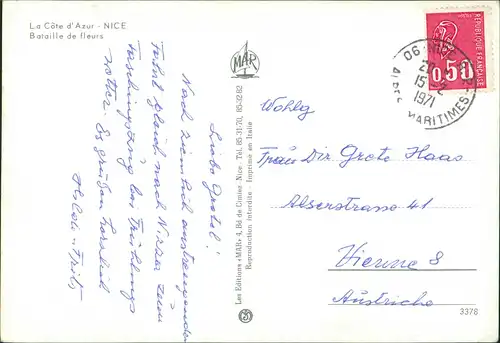 La Côte d'Azur - NICE
Bataille de fleurs
MAR
REPUBLIQUE FRANÇAISE
0,50
06 - NICE
15
1971
MARITIMES
Liebe Gretel!
Nach ziemlich anstrengender
Fahrt gleich nach Nizza zum
Faschingszug bei Frühlings
wetter. Es grüßen herzlich
Les Editions «MAR» 4, Bd de Cimiez Nice. Tél. 85-31-70, 85-62-82
Reproduction interdite Imprimé en Italie
Wohlg
Frau Dir. Grete Haas
Alserstrasse 41
Vienne 8
Autriche
3378